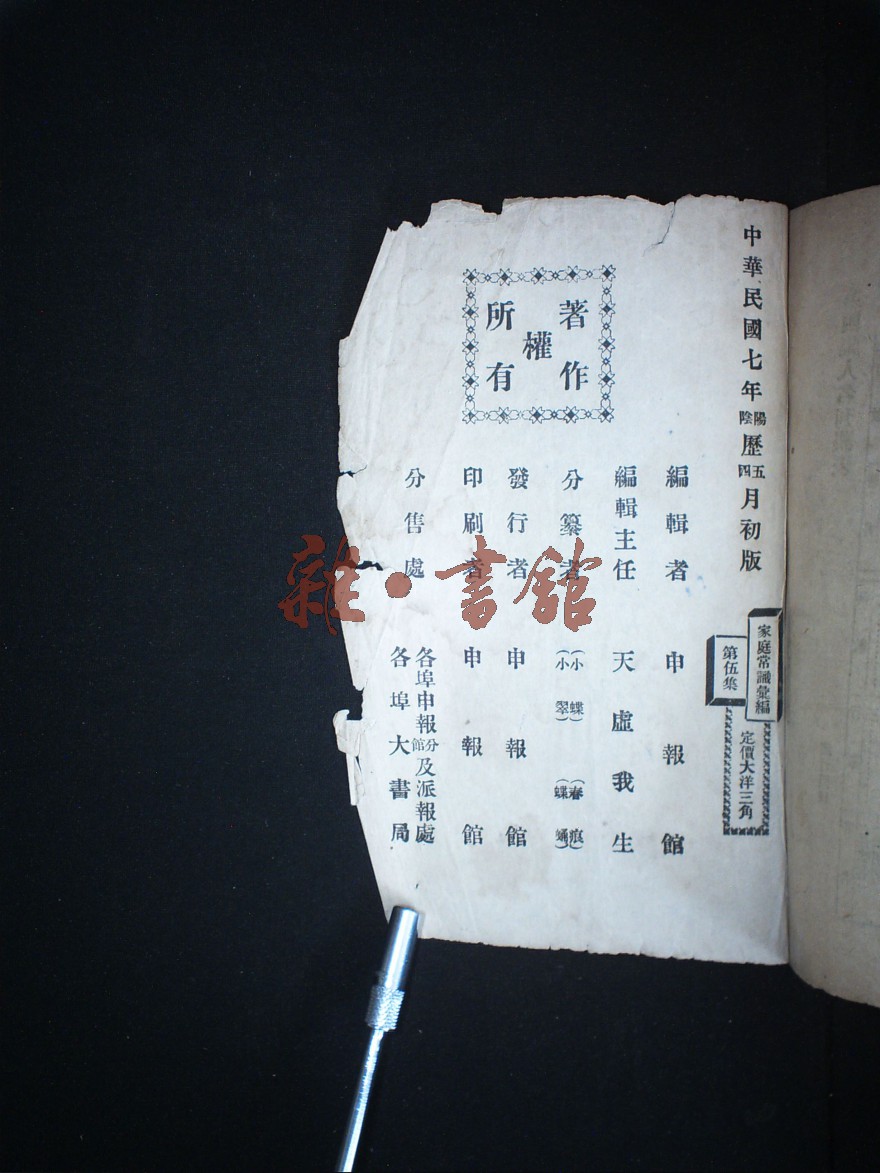 中華民國七年陽陰歷五四月初版
家庭常識彙編
第伍集
定價大洋三角
編輯者 申報館
編輯主任 天虛我生
分纂者 (小蝶) (春痕) (小翠) (蝶蝀)
發行者 申報館
印刷者 申報館
分售處 各埠申報分館及派報處
各埠大書局
著作權所有
雜·書館